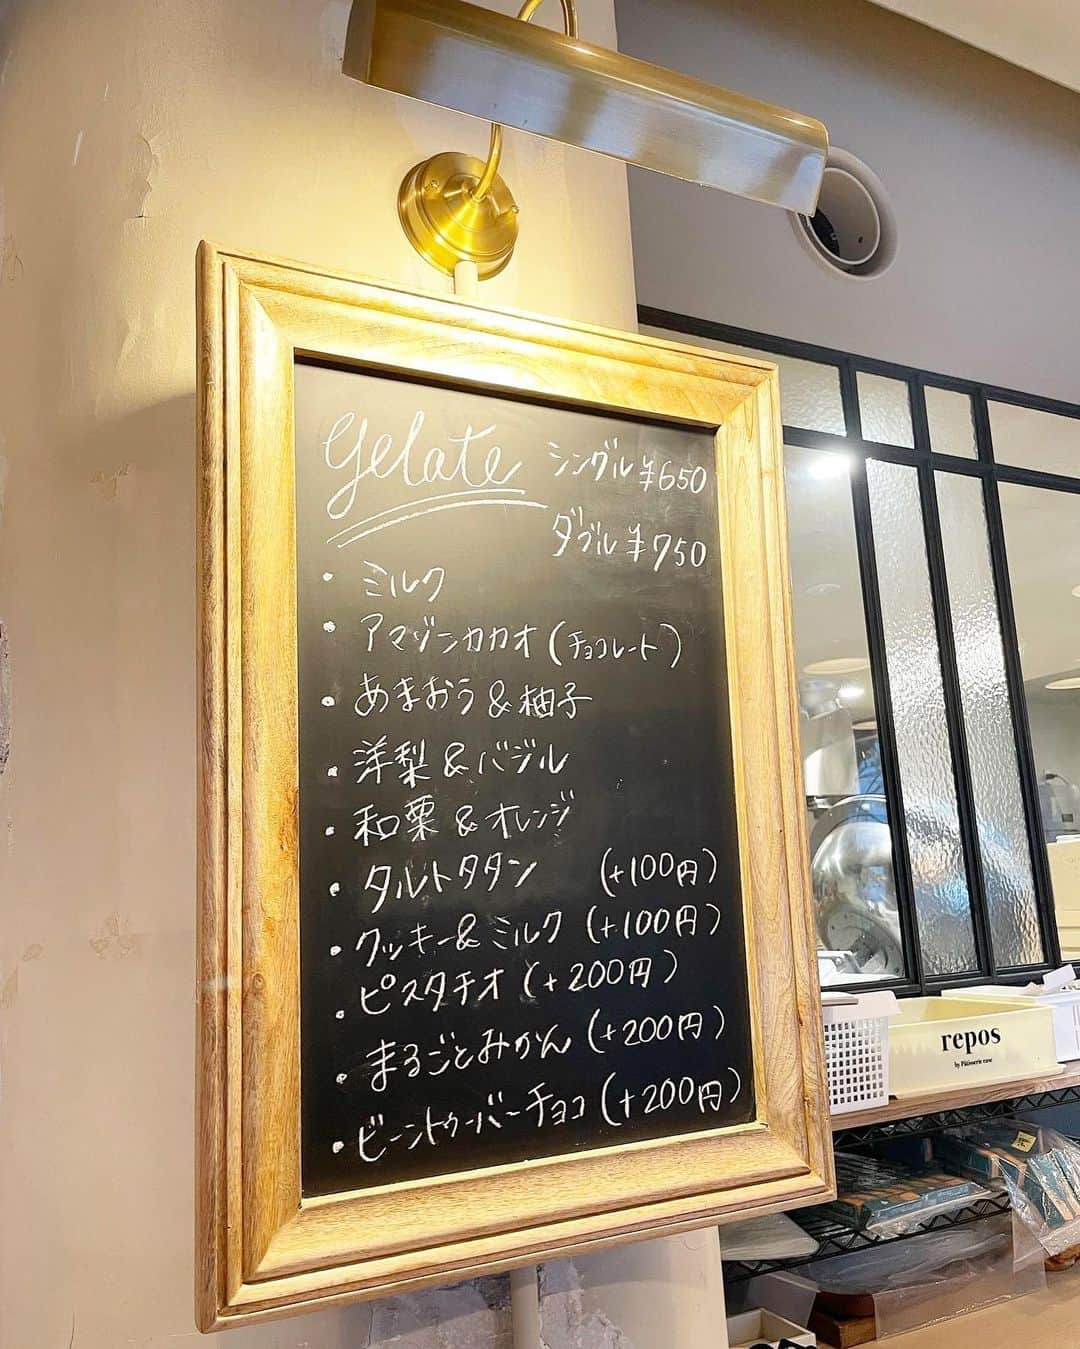 gelate シングル ¥650
ダブル ¥750
・ミルク
・アマゾンカカオ(チョコレート)
・あまおう&柚子
・洋梨&バジル
・和栗&オレンジ
・タルトタタン (+100円)
・クッキー&ミルク (+100円)
・ピスタチオ (+200円)
・まるごとみかん (+200円)
・ビーントゥーバーチョコ (+200円)
repos
by Pâtisserie ease